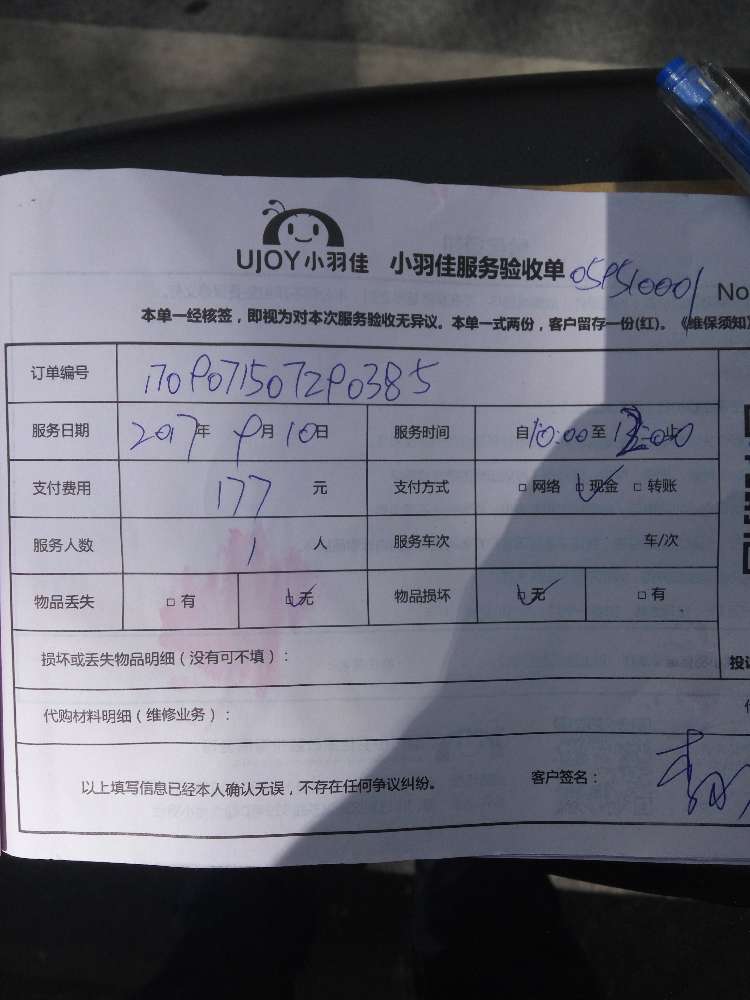 UJOY小羽佳 小羽佳服务验收单 05P510001 No
本单一经核签，即视为对本次服务验收无异议。本单一式两份，客户留存一份(红)。《维保须知》
订单编号 1709071507290385
服务日期 2017年 9月 10日 服务时间 自10:00至12:00止
支付费用 177 元 支付方式 □ 网络 ☑ 现金 □ 转账
服务人数 1 人 服务车次 车/次
物品丢失 □ 有 ☑ 无 物品损坏 ☑ 无 □ 有
损坏或丢失物品明细（没有可不填）：
投
代购材料明细（维修业务）：
以上填写信息已经本人确认无误，不存在任何争议纠纷。 客户签名：